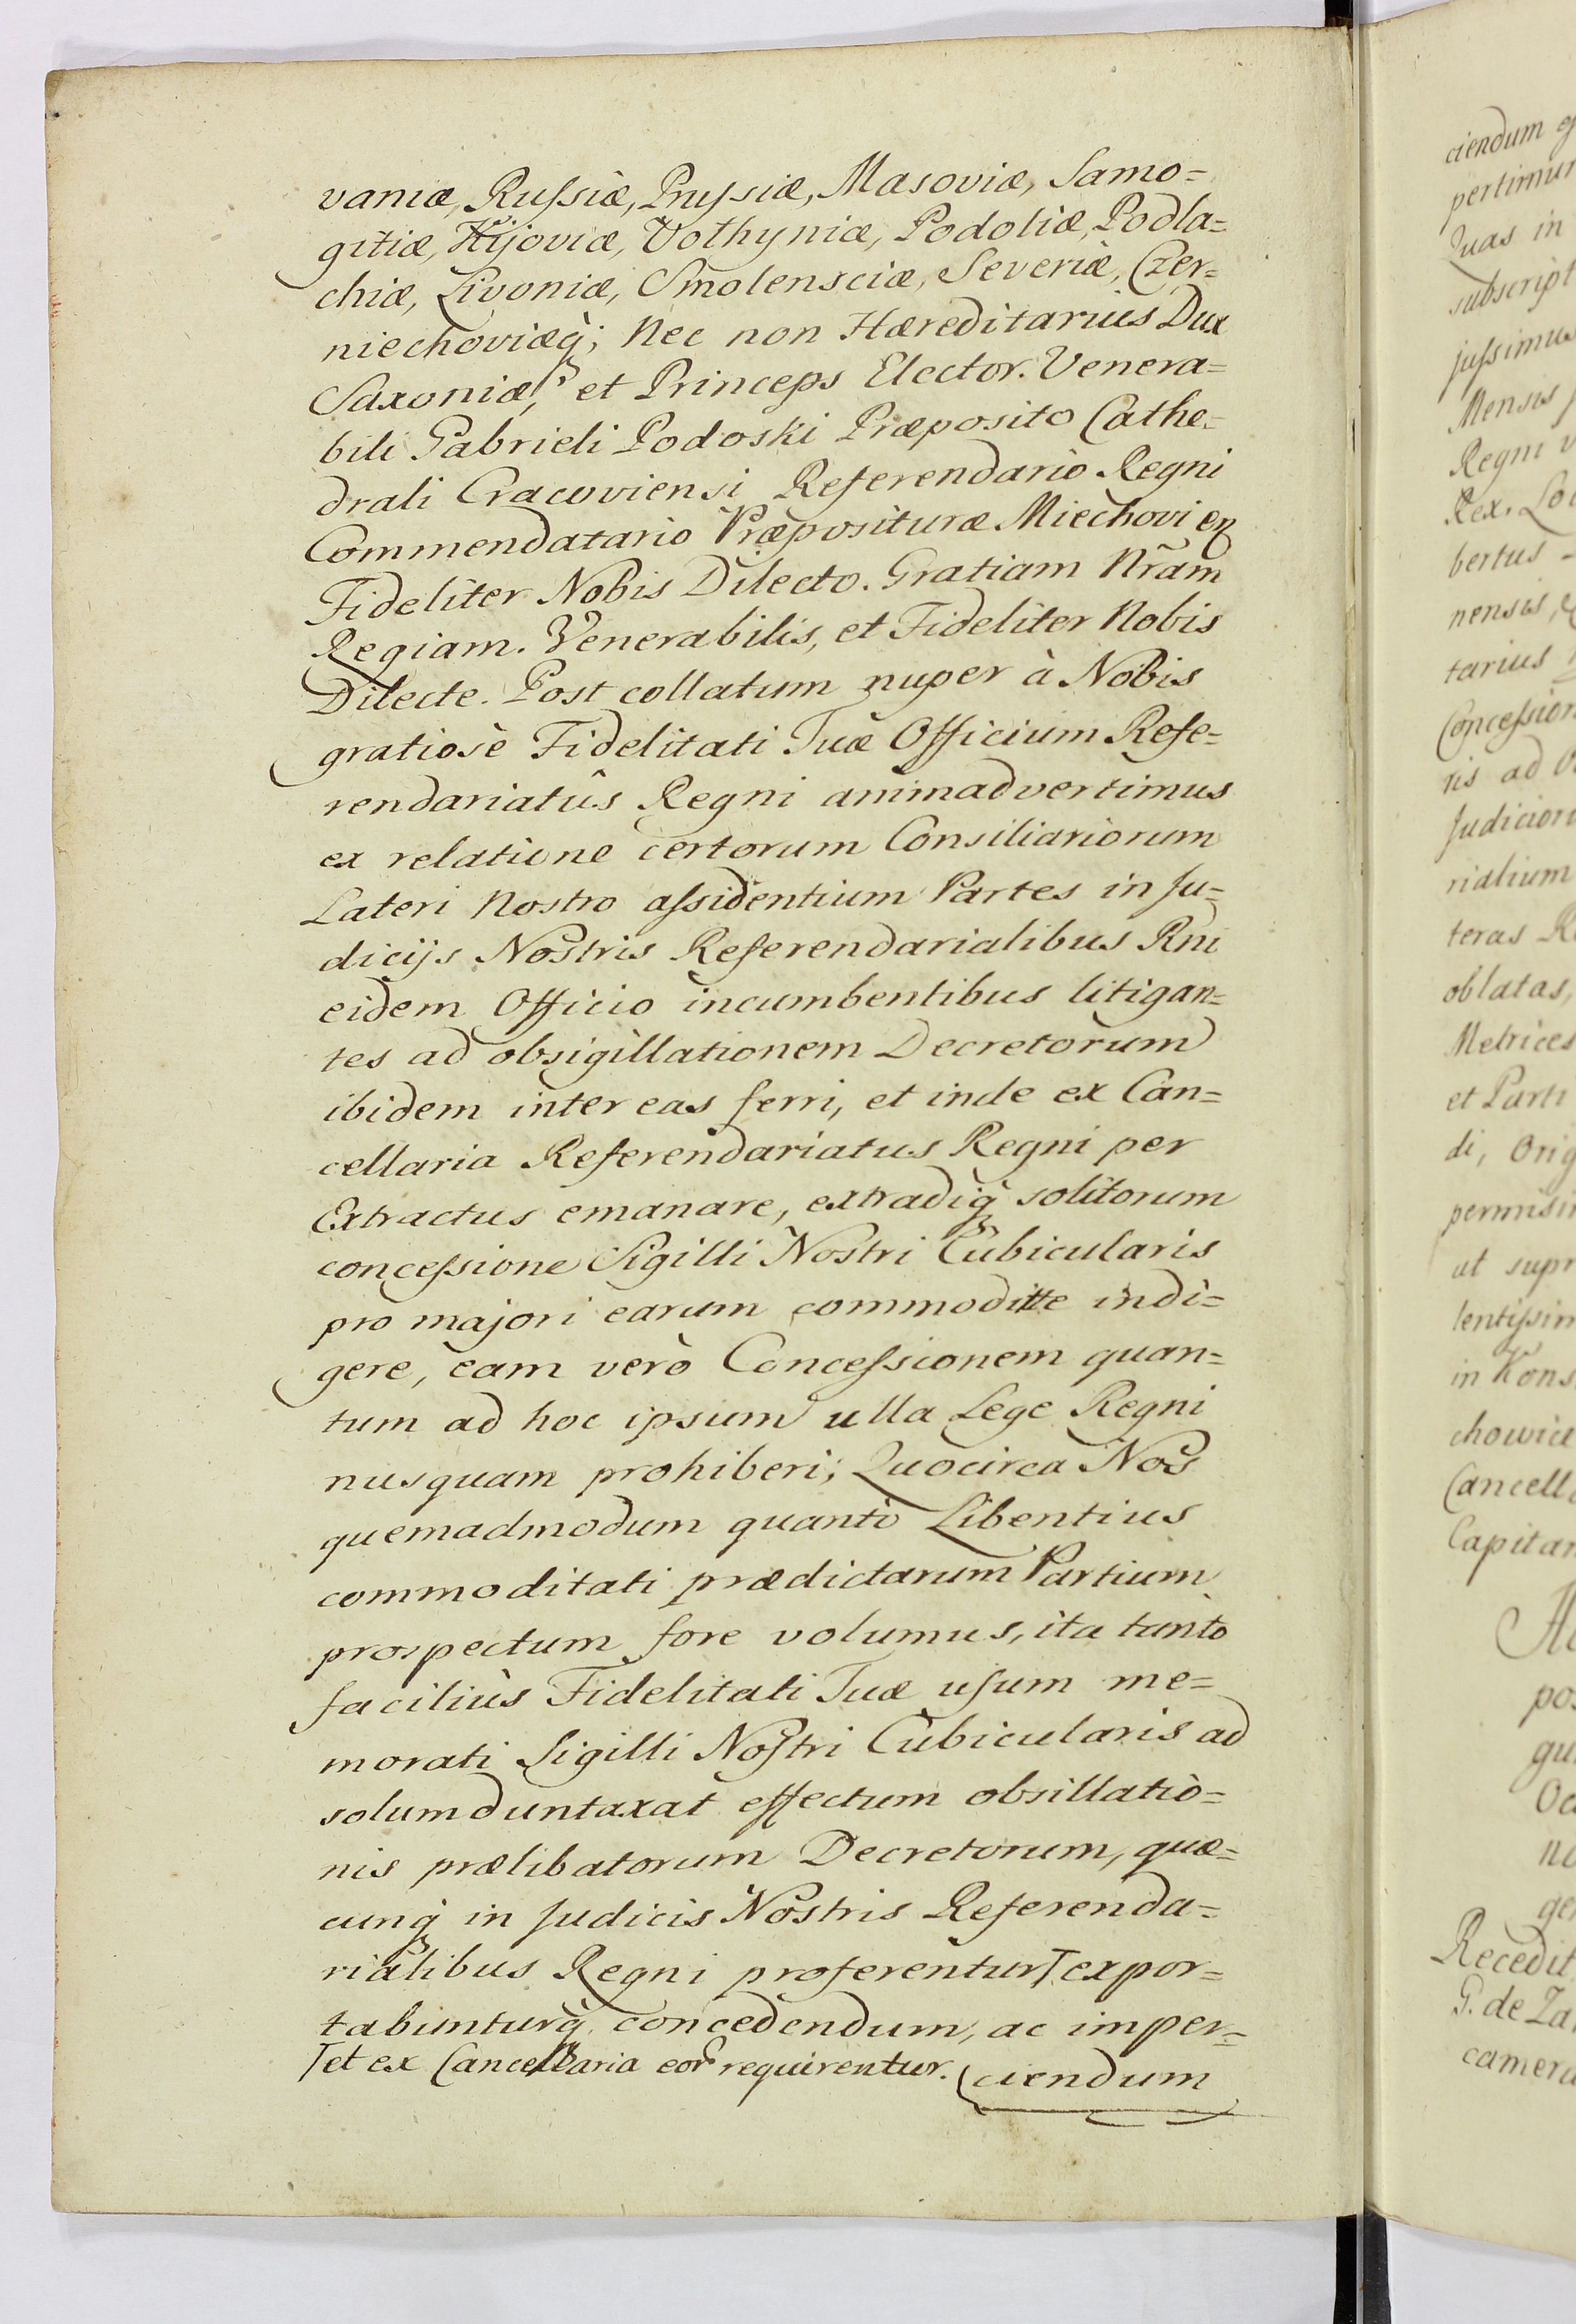 vaniæ, Russiæ, Prussiæ, Masoviæ, Samo=
gitiæ, Kijoviæ, Volhyniæ, Podoliæ, Podla=
chiæ, Livoniæ, Smolensciæ, Severiæ, Czer=
niechoviæq; Nec non Hæreditarius Dux
Saxoniæ, et Princeps Elector. Venera=
bili Gabrieli Podoski Præposito Cathe=
drali Cracoviensi Referendario Regni
Commendatario Præposituræ Miechovien
Fideliter Nobis Dilecto. Gratiam Nram
Regiam. Venerabilis, et Fideliter Nobis
Dilecte. Post collatum nuper à Nobis
gratiosè Fidelitati Tuæ Officium Refe=
rendariatûs Regni animadvertimus
ex relatione certorum Consiliariorum
Lateri Nostro assidentium Partes in Ju=
dicijs Nostris Referendarialibus Rni
eidem Officio incumbentibus litigan=
tes ad obsigillationem Decretorum
ibidem inter eas ferri, et inde ex Can=
cellaria Referendariatus Regni per
Extractus emanare, extradiq solitorum
concessione Sigilli Nostri Cubicularis
pro majori earum commoditte indi=
gere, eam verò Concessionem quan=
tum ad hoc ipsum ulla Lege Regni
nusquam prohiberi; Quocirca Nos
quemadmodum quantò Libentius
commoditati prædictarum Partium
prospectum fore volumus, ita tantò
faciliùs Fidelitati Tuæ usum me=
morati Sigilli Nostri Cubicularis ad
solum duntaxat effectum obsillatio=
nis prælibatorum Decretorum, quæ=
cunq in Judicis Nostris Referenda=
rialibus Regni proferentur expor=
tabunturq concedendum, ac imper=
et ex Cancellaria eor requirentur. ciendum
ciendum
pertimur
Quas in
subscript
jussimus
Mensis
Regni
Rex. Lo
bertus
nensis,
tarius
Concession
ris ad
Judicior
rialium
teras
oblatas,
Metrices
et Parti
di, Orig
permisi
ut supr
lentissim
in Kons
chovice
Cancell
Capitan
Ac
pos
gu
Oc
no
ge
Recedit
G. de Za
camera